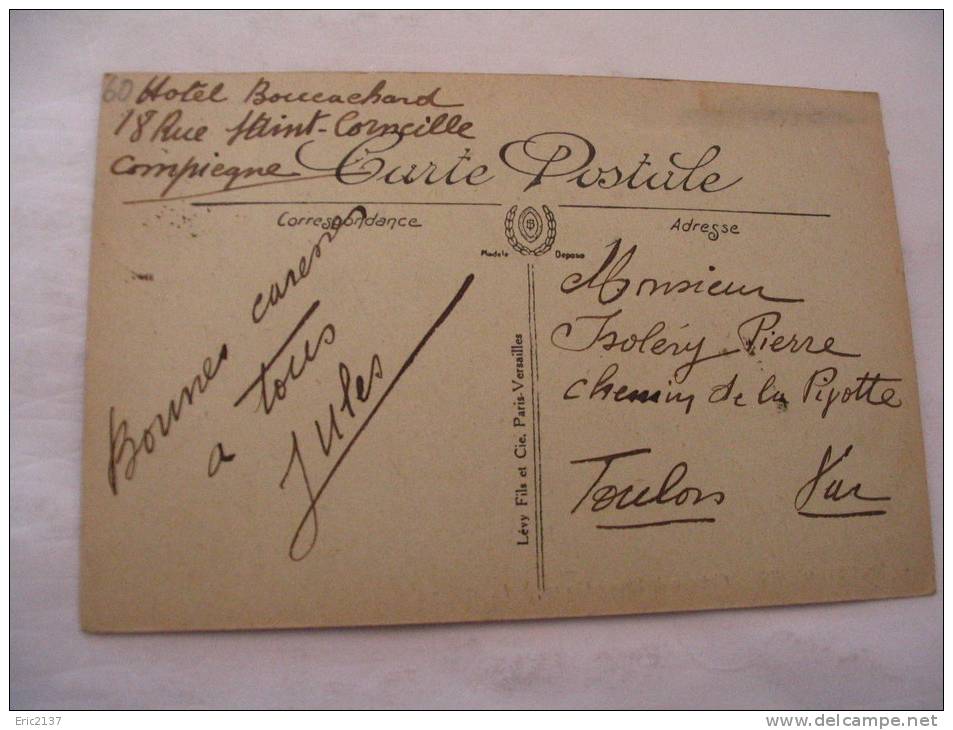 60 Hotel Boucachard
18 Rue Saint-Corneille
Compiegne
Carte Postale
Correspondance
Adresse
Modele Depose
Bonnes caresses
a tous
Jules
Lévy Fils et Cie, Paris-Versailles
Monsieur
Isoléry Pierre
chemin de la Pigotte
Toulon Var
Eric2137
www.delcampe.net